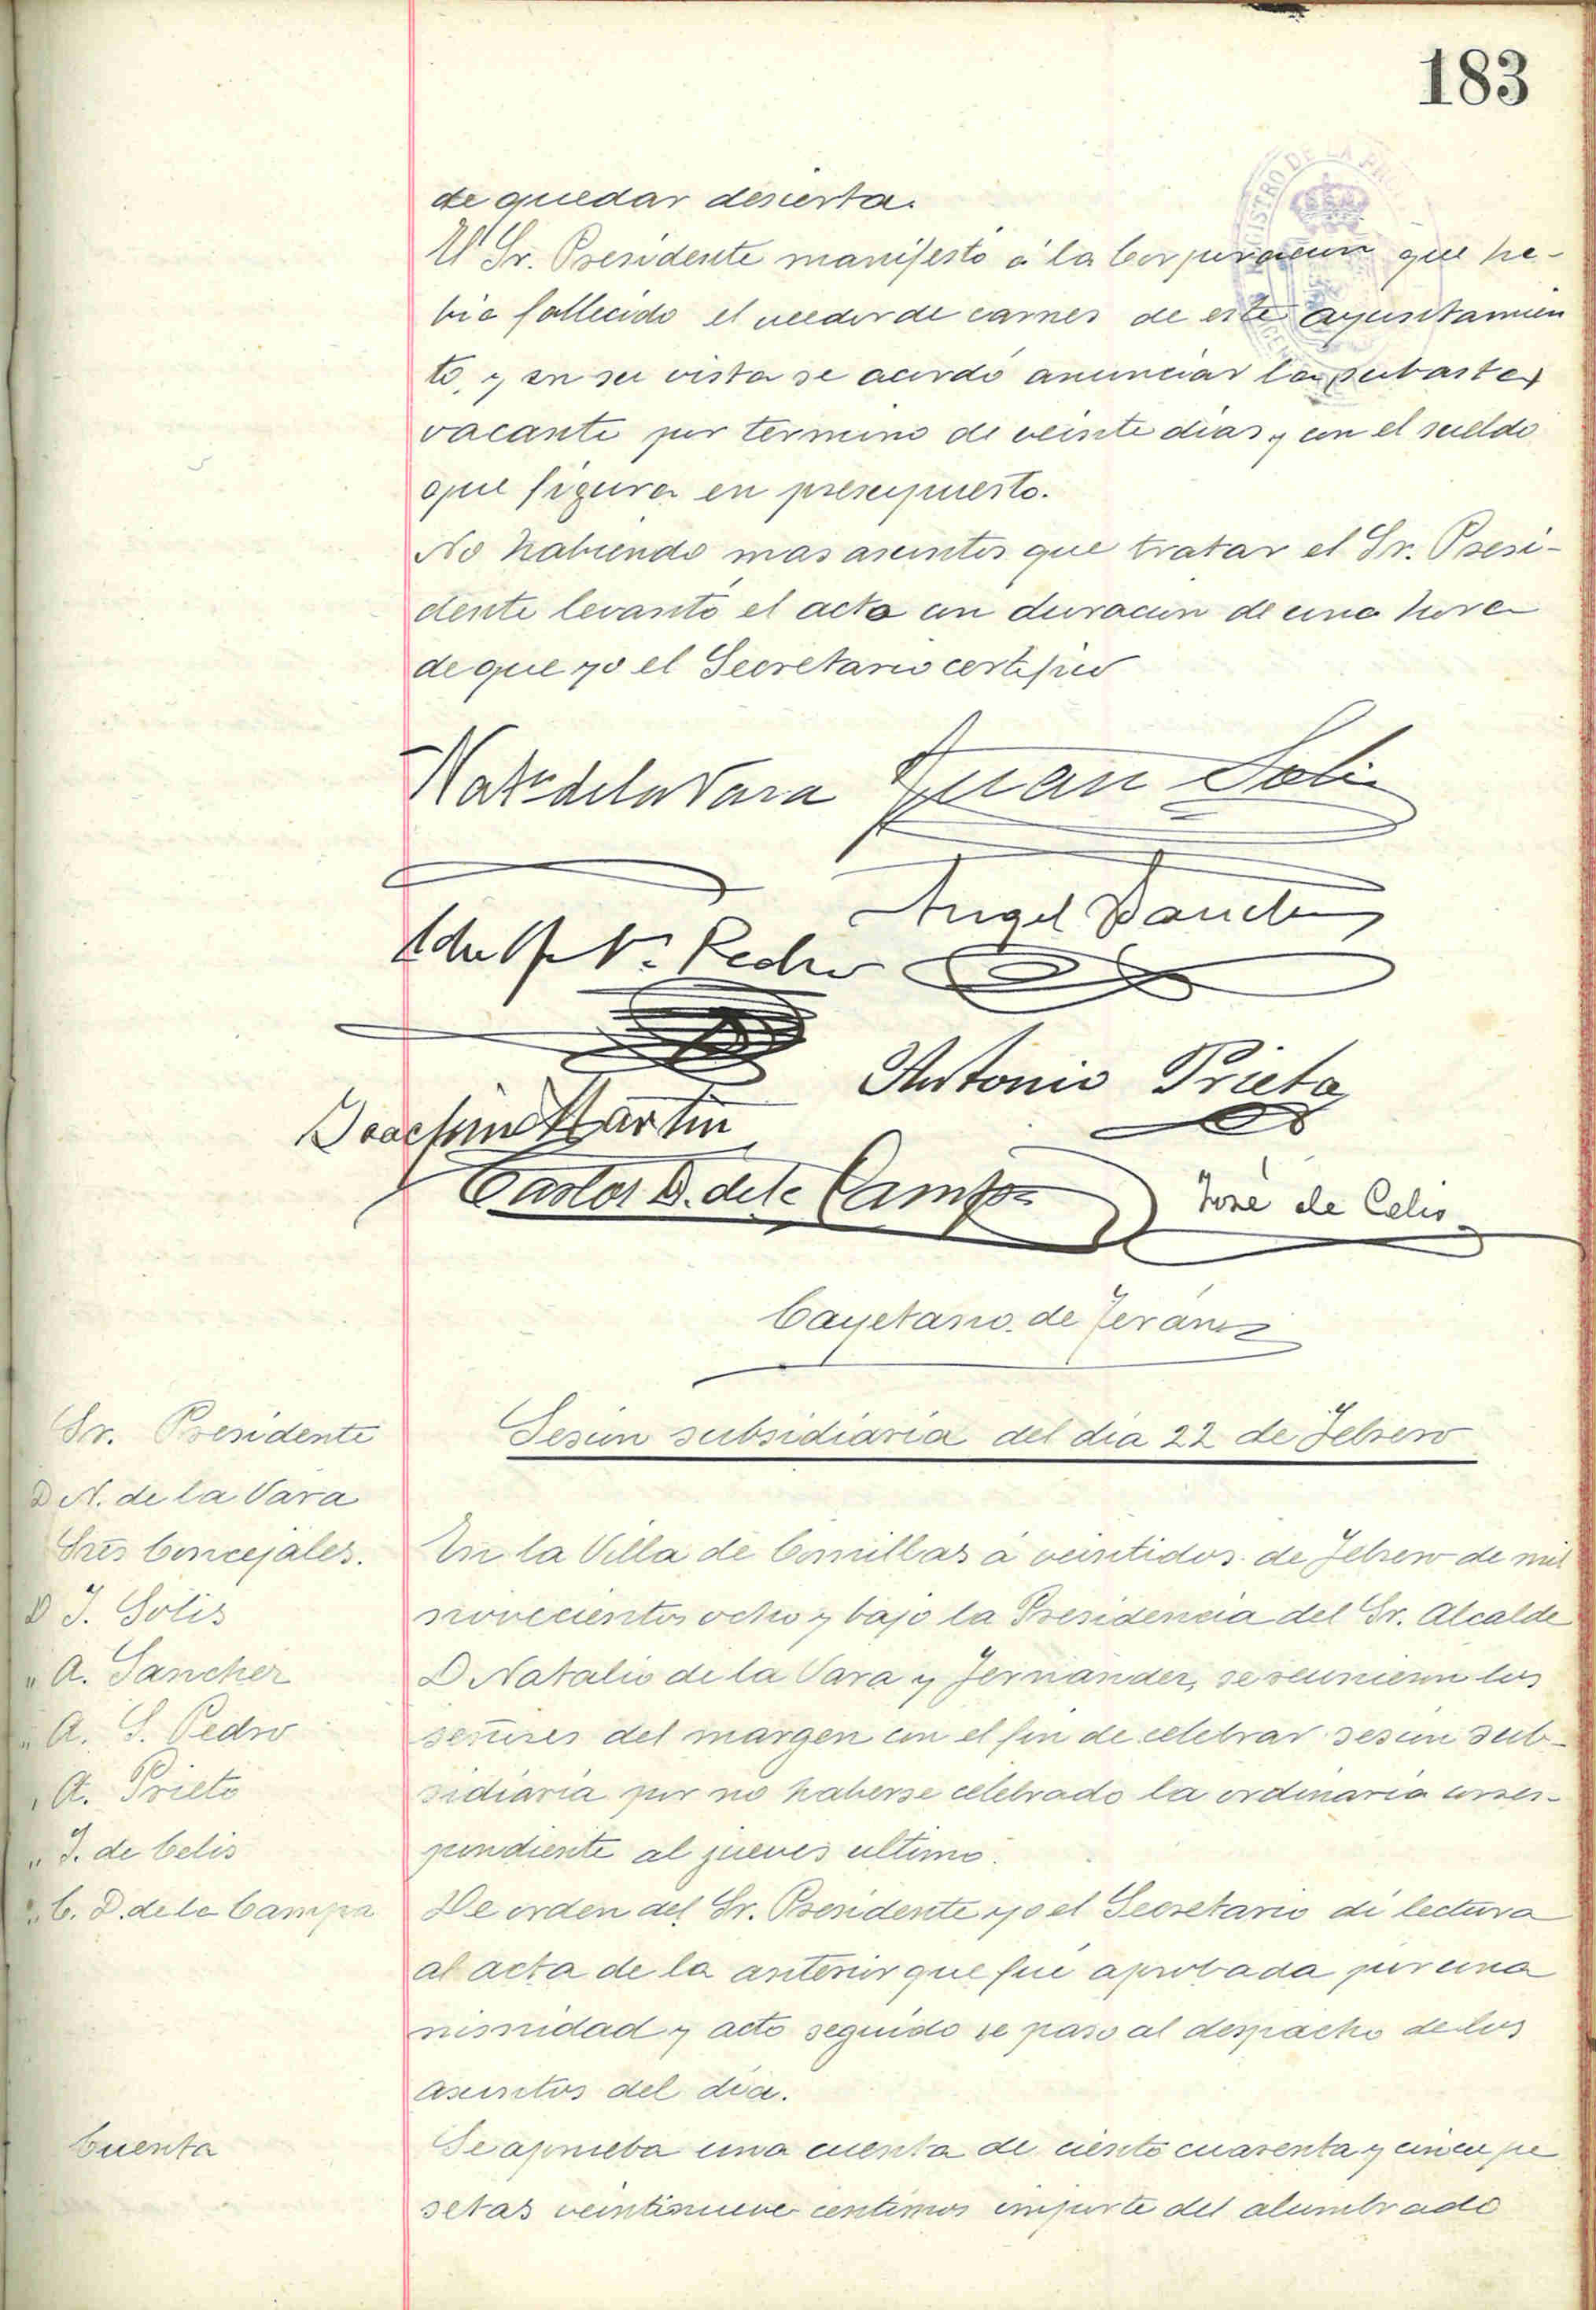 183
de quedar desierta.
El Sr. Presidente manifestó á la Corporacion que ha-
bia fallecido el veedor de carnes de este Ayuntamien
to, y en su vista se acordó anunciar la subasta
vacante por termino de veinte dias y con el sueldo
que figura en presupuesto.
No habiendo mas asuntos que tratar el Sr. Presi-
dente levantó el acta con duracion de una hora
de que yo el Secretario certifico
Nat. de la Vara Juan Solis
Angel Sanchez
Adolfo S. Pedro
Antonio Prieto
Joaquin Martin
Carlos D. de la Campa José de Celis
Cayetano de Teran
Sr. Presidente
D N. de la Vara
Sres Concejales.
D J. Solis
" A. Sanchez
" A. S. Pedro
" A. Prieto
" J. de Celis
" C. D. de la Campa
Cuenta
Sesion subsidiaria del dia 22 de Febrero
En la Villa de Comillas á veintidos de Febrero de mil
novecientos ocho y bajo la Presidencia del Sr. Alcalde
D Natalio de la Vara y Fernández, se reunieron los
señores del margen con el fin de celebrar sesion sub-
sidiaria por no haberse celebrado la ordinaria corres-
pondiente al jueves ultimo.
De orden del Sr. Presidente yo el Secretario di lectura
al acta de la anterior que fué aprobada por una
nimidad y acto seguido se paso al despacho de los
asuntos del dia.
Se aprueba una cuenta de ciento cuarenta y cinco pe
setas veintinueve centimos importe del alumbrado